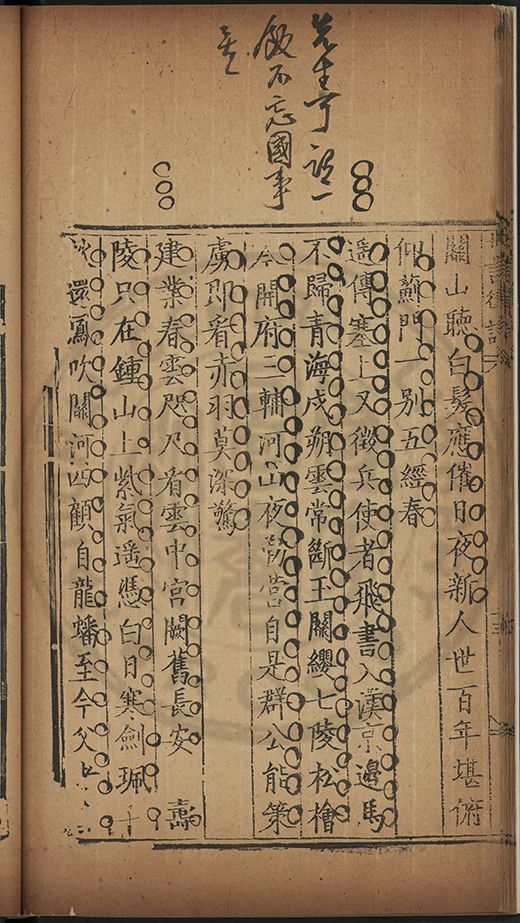 先生寧詎一
飯不忘國事
關山聽白髮應催日夜新人世百年堪俯
仰薊門一別五經春
遥傳塞上又徵兵使者飛書入漢京邊馬
不歸青海戍朔雲常斷玉關纓七陵松檜
今開府三輔河山夜勒營自是群公能策
虜即看赤羽莫深驚
建業春雲咫尺看雲中宮闕舊長安壽
陵只在鍾山上紫氣遥憑白日寒劍珮十
還鳳吹關河四顧自龍蟠至今父